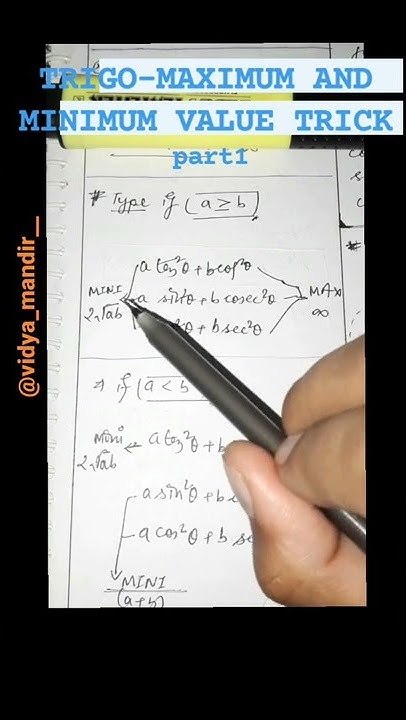 TRIGO-MAXIMUM AND
MINIMUM VALUE TRICK
part1
@vidya_mandir__
# Type if (a ≥ b)
a tan²θ + b cot²θ
MINI a sin²θ + b cosec²θ MAX
2√ab ²θ + b sec²θ ∞
⇒ if (a < b
Mini a tan²θ + b
2√ab
a sin²θ + b
a cos²θ + b se
MINI
(a+b)